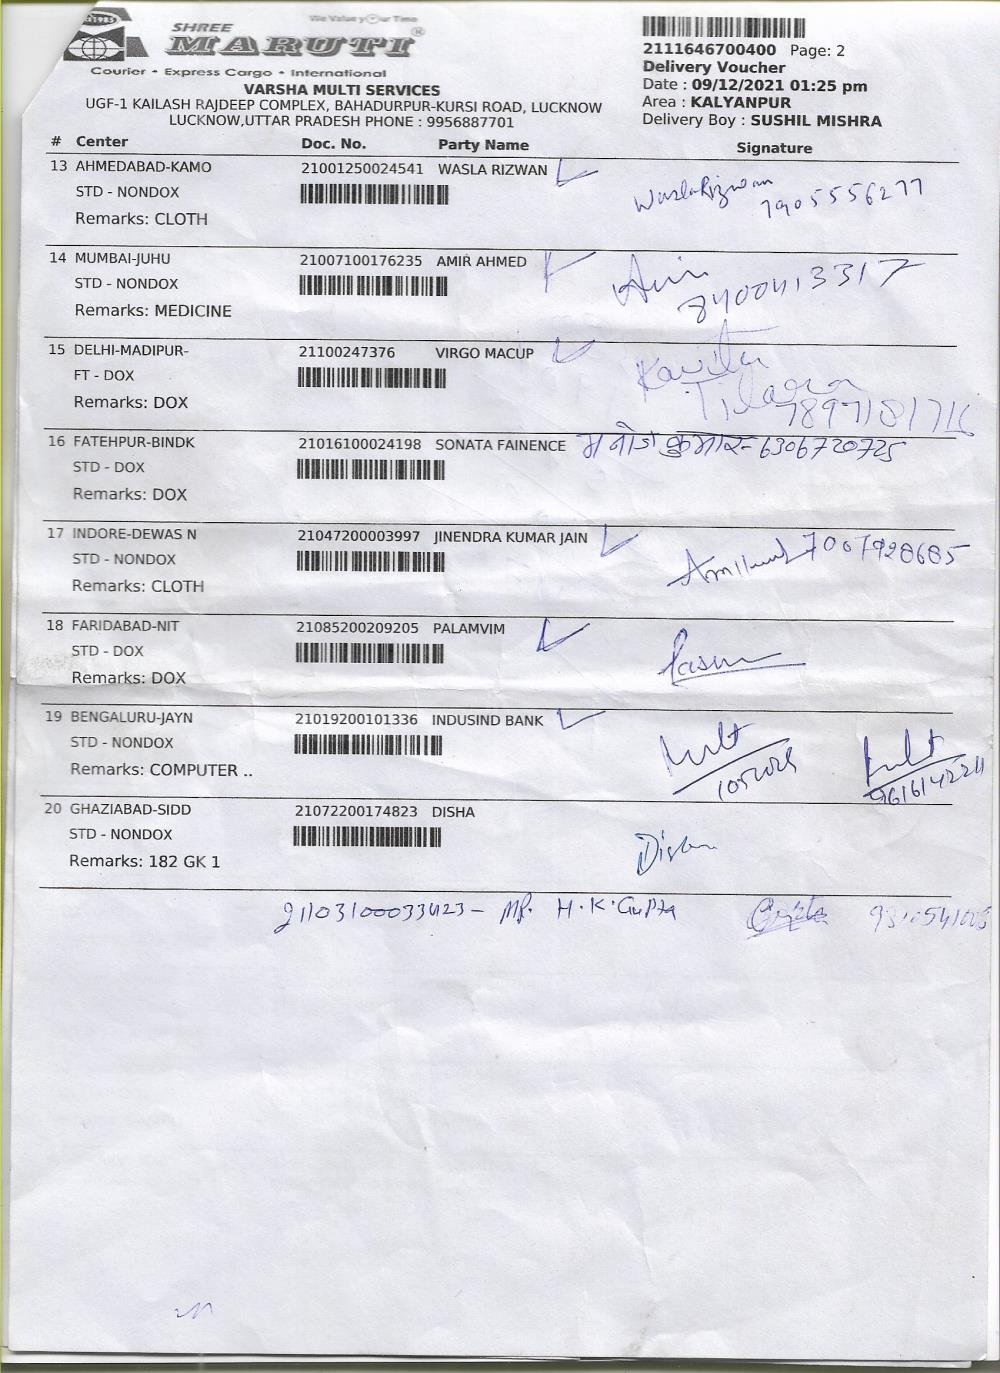 1985
We Value your Time
SHREE
MARUTI®
Courier • Express Cargo • International
VARSHA MULTI SERVICES
UGF-1 KAILASH RAJDEEP COMPLEX, BAHADURPUR-KURSI ROAD, LUCKNOW
LUCKNOW,UTTAR PRADESH PHONE : 9956887701
2111646700400 Page: 2
Delivery Voucher
Date : 09/12/2021 01:25 pm
Area : KALYANPUR
Delivery Boy : SUSHIL MISHRA
# Center Doc. No. Party Name Signature
13 AHMEDABAD-KAMO 21001250024541 WASLA RIZWAN
STD - NONDOX Wasla Rizwan
7905556277
Remarks: CLOTH
14 MUMBAI-JUHU 21007100176235 AMIR AHMED
STD - NONDOX 8400413317
Remarks: MEDICINE
15 DELHI-MADIPUR- 21100247376 VIRGO MACUP
FT - DOX Kavita
Remarks: DOX 7897181716
16 FATEHPUR-BINDK 21016100024198 SONATA FAINENCE मनोज कुमार- 6306720725
STD - DOX
Remarks: DOX
17 INDORE-DEWAS N 21047200003997 JINENDRA KUMAR JAIN
STD - NONDOX 7007928685
Remarks: CLOTH
18 FARIDABAD-NIT 21085200209205 PALAMVIM
STD - DOX
Remarks: DOX
19 BENGALURU-JAYN 21019200101336 INDUSIND BANK
STD - NONDOX
Remarks: COMPUTER .. 9616142211
20 GHAZIABAD-SIDD 21072200174823 DISHA
STD - NONDOX Disha
Remarks: 182 GK 1
21103100033423- Mr. H.K. Gupta Gupta